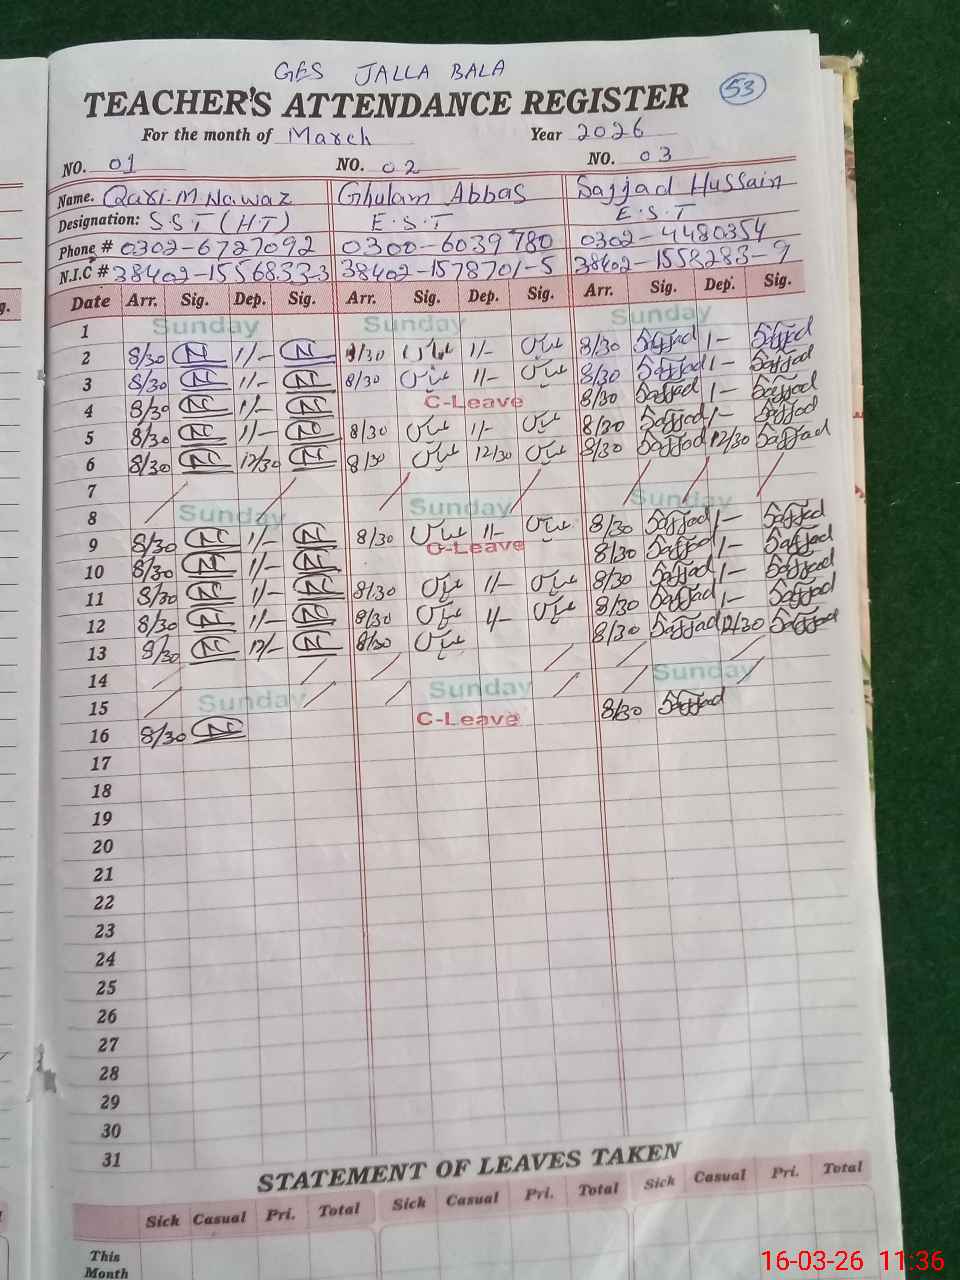 GES JALLA BALA
53
TEACHER'S ATTENDANCE REGISTER
For the month of March Year 2026
NO. 01 NO. 02 NO. 03
Name. Qari M Nawaz Ghulam Abbas Sajjad Hussain
Designation: S.S.T (H.T) E.S.T E.S.T
Phone # 0302-6727092 0300-6039780 0302-4480354
N.I.C # 38402-1556833-3 38402-1578701-5 38402-1558283-9
Date Arr. Sig. Dep. Sig. Arr. Sig. Dep. Sig. Arr. Sig. Dep. Sig.
1 Sunday Sunday Sunday
2 8/30 N 1/- N 8/30 عباس 1/- عباس 8/30 Sajjad 1- Sajjad
3 8/30 N 1/- N 8/30 عباس 1/- عباس 8/30 Sajjad 1- Sajjad
4 8/30 N 1/- N C-Leave 8/30 Sajjad 1- Sajjad
5 8/30 N 1/- N 8/30 عباس 1/- عباس 8/30 Sajjad 1- Sajjad
6 8/30 N 12/30 N 8/30 عباس 12/30 عباس 8/30 Sajjad 12/30 Sajjad
7
8 Sunday Sunday Sunday
9 8/30 N 1/- N 8/30 عباس 1/- عباس 8/30 Sajjad 1- Sajjad
10 8/30 N 1/- N C-Leave 8/30 Sajjad 1- Sajjad
11 8/30 N 1/- N 8/30 عباس 1/- عباس 8/30 Sajjad 1- Sajjad
12 8/30 N 1/- N 8/30 عباس 1/- عباس 8/30 Sajjad 1- Sajjad
13 8/30 N 12/- N 8/30 عباس 8/30 Sajjad 12/30 Sajjad
14
15 Sunday Sunday Sunday
16 8/30 N C-Leave 8/30 Sajjad
17
18
19
20
21
22
23
24
25
26
27
28
29
30
31
STATEMENT OF LEAVES TAKEN
Sick Casual Pri. Total Sick Casual Pri. Total Sick Casual Pri. Total
This
Month
16-03-26 11:36